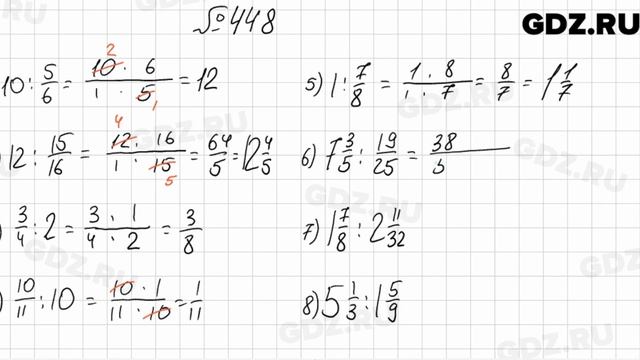 №448
GDZ.RU
10 : 5/6 = (10 · 6)/(1 · 5) = 12
2
1
12 : 15/16 = (12 · 16)/(1 · 15) = 64/5 = 12 4/5
4
5
) 3/4 : 2 = (3 · 1)/(4 · 2) = 3/8
) 10/11 : 10 = (10 · 1)/(11 · 10) = 1/11
5) 1 : 7/8 = (1 · 8)/(1 · 7) = 8/7 = 1 1/7
6) 7 3/5 : 19/25 = 38/5
7) 1 7/8 : 2 11/32
8) 5 1/3 : 1 5/9